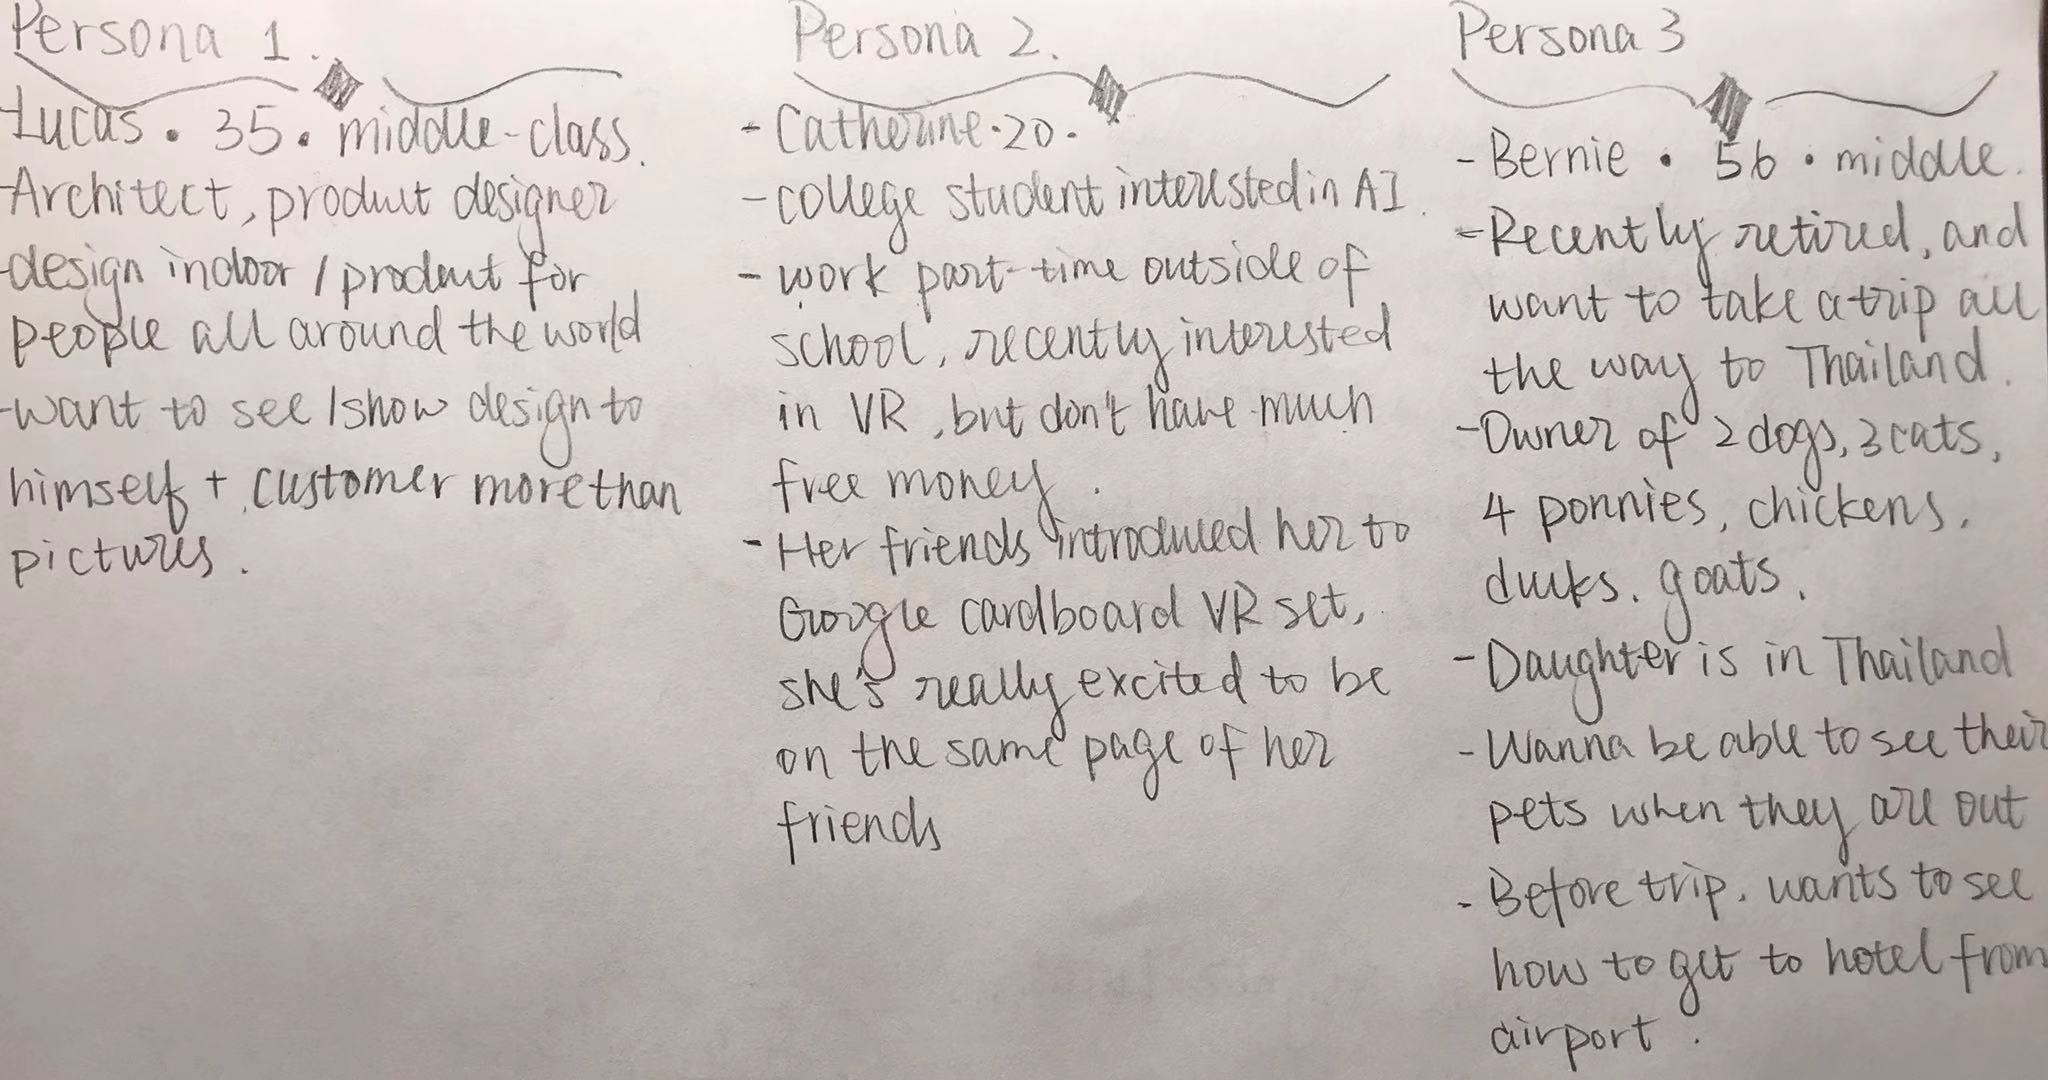 Persona 1.
-Lucas · 35 · middle-class.
-Architect, product designer
-design indoor / product for
people all around the world
-want to see /show design to
himself + customer more than
pictures.
Persona 2.
- Catherine · 20 ·
- college student interested in AI.
- work part-time outside of
school, recently interested
in VR, but don't have much
free money.
- Her friends introduced her to
Google cardboard VR set,
she's really excited to be
on the same page of her
friends
Persona 3
- Bernie · 56 · middle.
- Recently retired, and
want to take a trip all
the way to Thailand.
- Owner of 2 dogs, 3 cats,
4 ponnies, chickens,
ducks. goats.
- Daughter is in Thailand
- Wanna be able to see their
pets when they are out
- Before trip, wants to see
how to get to hotel from
airport.